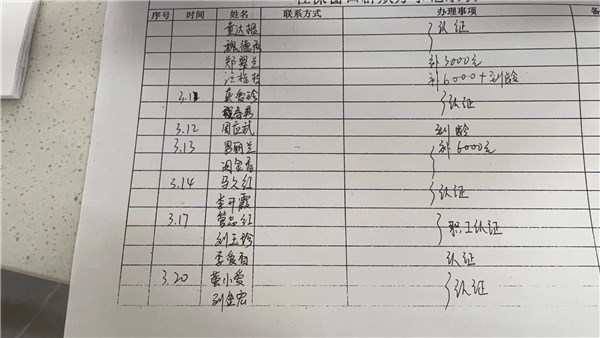 序号 时间 姓名 联系方式 办理事项 备
童达银 } 认证
魏德
郑翠兰 补3000元
江桂枝 补6000+到龄
3.11 龚爱珍 } 认证
3.12 周应斌 到龄
3.13 男丽兰 } 补6000元
闵金香
3.14 马久红 } 认证
李开霞
3.17 管志红 } 职工认证
刘玉珍
李爱香 认证
3.20 黄小爱 } 认证
刘金宏